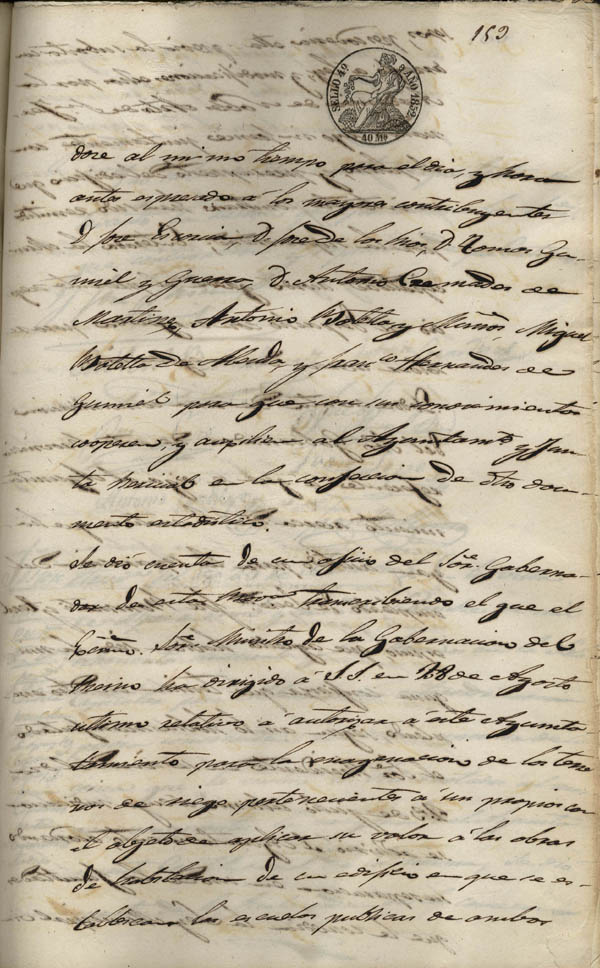 159
SELLO 4º AÑO 1859
40 Ms
dose al mismo tiempo para el dia, y hora
antes espresado á los mayores contribuyentes
D. José Garcia, D. José de los Rios, D. Ramon Gu-
miel y Guerra, D. Antonio Cremades de
Martinez, Antonio Botella y Muñoz, Miguel
Botella de Abeida, y Franco Hernandez de
Gumiel para que, con sus conocimientos
cooperen, y ausilien al Ayuntamto y Jun-
ta Pericial en la confeccion de dho docu-
mento estadistico.
Se dió cuenta de un oficio del Sor. Goberna-
dor de esta Prova transcribiendo el que el
Exmo. Sor. Ministro de la Gobernacion del
Reino ha dirigido á S.S. en 28 de Agosto
ultimo relativo á autorizar á este Ayunta-
miento para la enagenacion de los terre
nos de riego pertenecientes á sus propios con
el objeto de aplicar su valor á las obras
de habilitacion de un edificio en que se es-
tablezcan las escuelas publicas de ambos